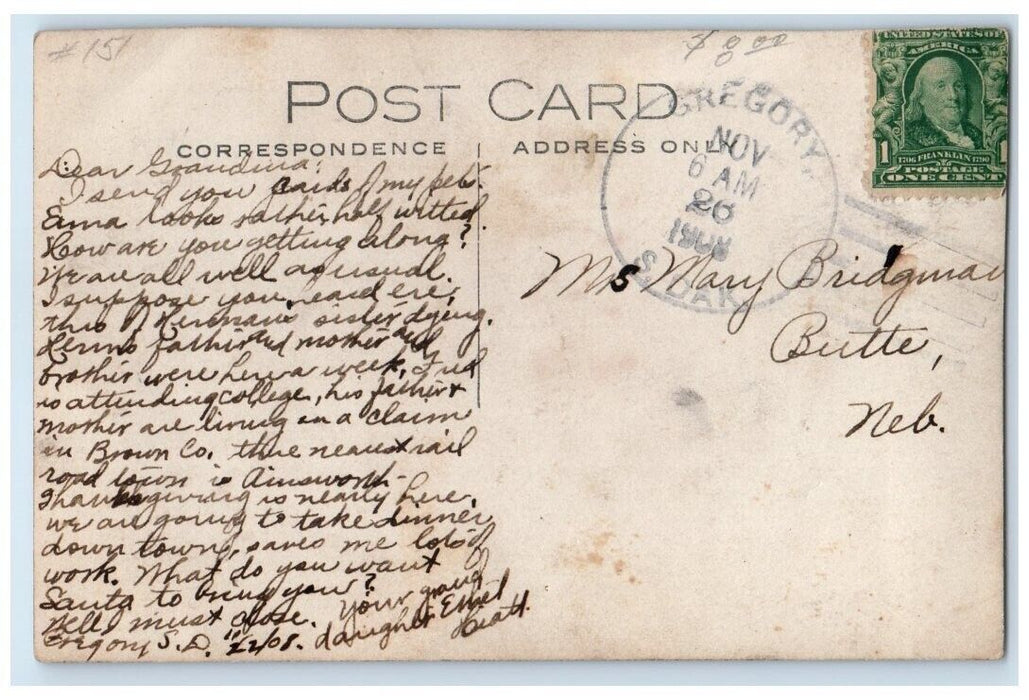 #151
$8.00
POST CARD
CORRESPONDENCE
ADDRESS ONLY
UNITED STATES OF
AMERICA
1 1706 FRANKLIN 1790 1
POSTAGE
ONE CENT
GREGORY,
NOV
6 AM
26
1908
S. DAK.
Dear Grandma:
I send you cards of my pets.
Erma looks rather half witted.
How are you getting along?
We are all well as usual.
I suppose you heard ere
this of sister dying.
father and mother and
brother were here a week, Fred
is attending college, his father &
mother are living on a claim
in Brown Co. the nearest rail
road town is Ainsworth.
Thanksgiving is nearly here,
we are going to take dinner
down town, saves me lots of
work. What do you want
Santa to bring you?
Well must close. Your grand
daughter Ethel
Gregory S.D. 11/22/08.
Mrs Mary Bridgman
Butte,
Neb.